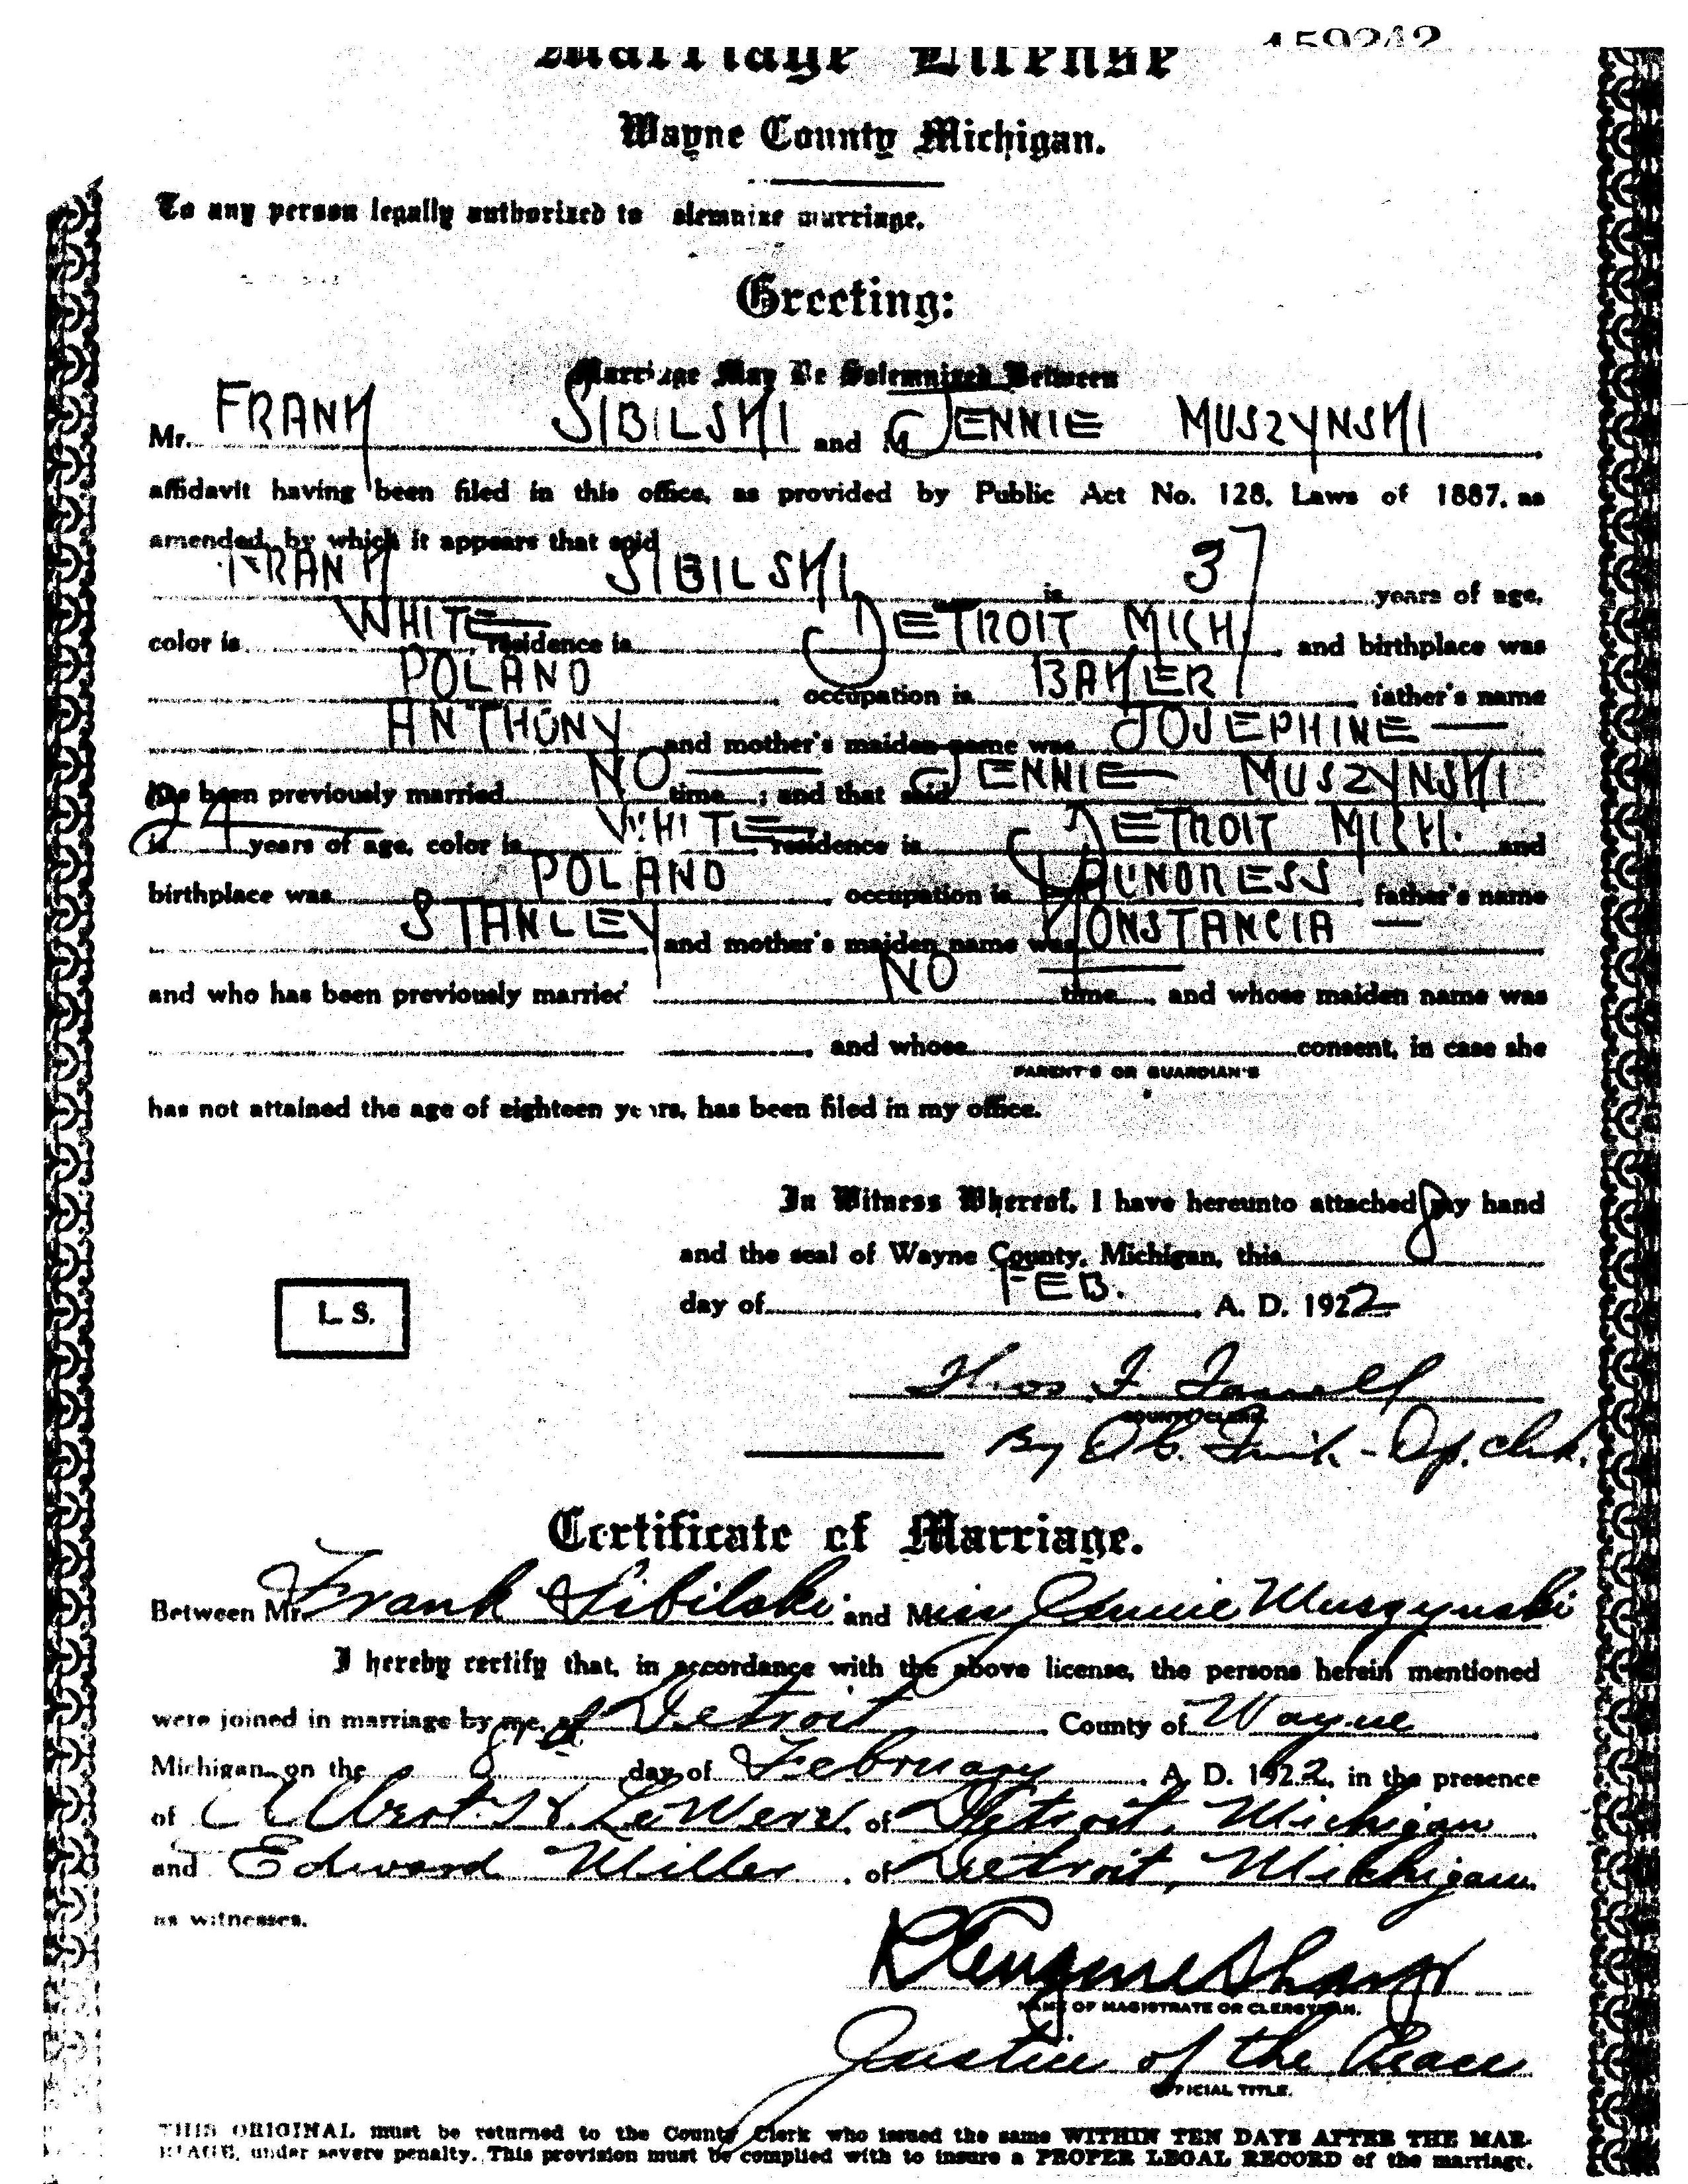 159242
Marriage License
Wayne County Michigan.
To any person legally authorized to olemnize marriage.
Greeting:
Marriage May Be Solemnized Between
Mr. FRANK SIBILSKI and M JENNIE MUSZYNSKI
affidavit having been filed in this office, as provided by Public Act No. 128, Laws of 1887, as
amended, by which it appears that said
FRANK SIBILSKI is 37 years of age,
color is WHITE residence is DETROIT MICH. and birthplace was
POLAND occupation is BAKER father's name
ANTHONY and mother's maiden name was JOSEPHINE —
has been previously married NO time ; and that said JENNIE MUSZYNSKI
is years of age, color is WHITE residence is DETROIT MICH. and
birthplace was POLAND, occupation is LAUNDRESS, father's name
STANLEY and mother's maiden name was KONSTANCIA —
and who has been previously married NO time, and whose maiden name was
, and whose consent, in case she
PARENT'S OR GUARDIAN'S
has not attained the age of eighteen years, has been filed in my office.
In Witness Whereof, I have hereunto attached my hand
and the seal of Wayne County, Michigan, this 8
day of FEB. , A. D. 1922
L. S.
Thos F. Farrell
COUNTY CLERK.
By Dp. Clerk.
Certificate of Marriage.
Between Mr. Frank Sibilski and Miss Jennie Muszynski
I hereby certify that, in accordance with the above license, the persons herein mentioned
were joined in marriage by me, at Detroit County of Wayne
Michigan, on the 8th day of February, A. D. 1922, in the presence
of Albert H. of Detroit, Michigan
and Edward Miller, of Detroit, Michigan.
as witnesses.
Eugene Sharp
NAME OF MAGISTRATE OR CLERGYMAN.
Justice of the Peace
OFFICIAL TITLE.
THIS ORIGINAL must be returned to the County Clerk who issued the same WITHIN TEN DAYS AFTER THE MAR-
RIAGE, under severe penalty. This provision must be complied with to insure a PROPER LEGAL RECORD of the marriage.